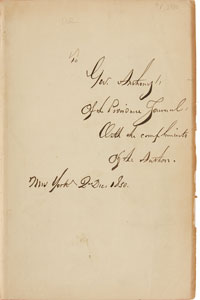 To
Gov. Anthony,
Of the Providence Journal.
With the compliments
of the Author.
New York 2 Dec. 1850.